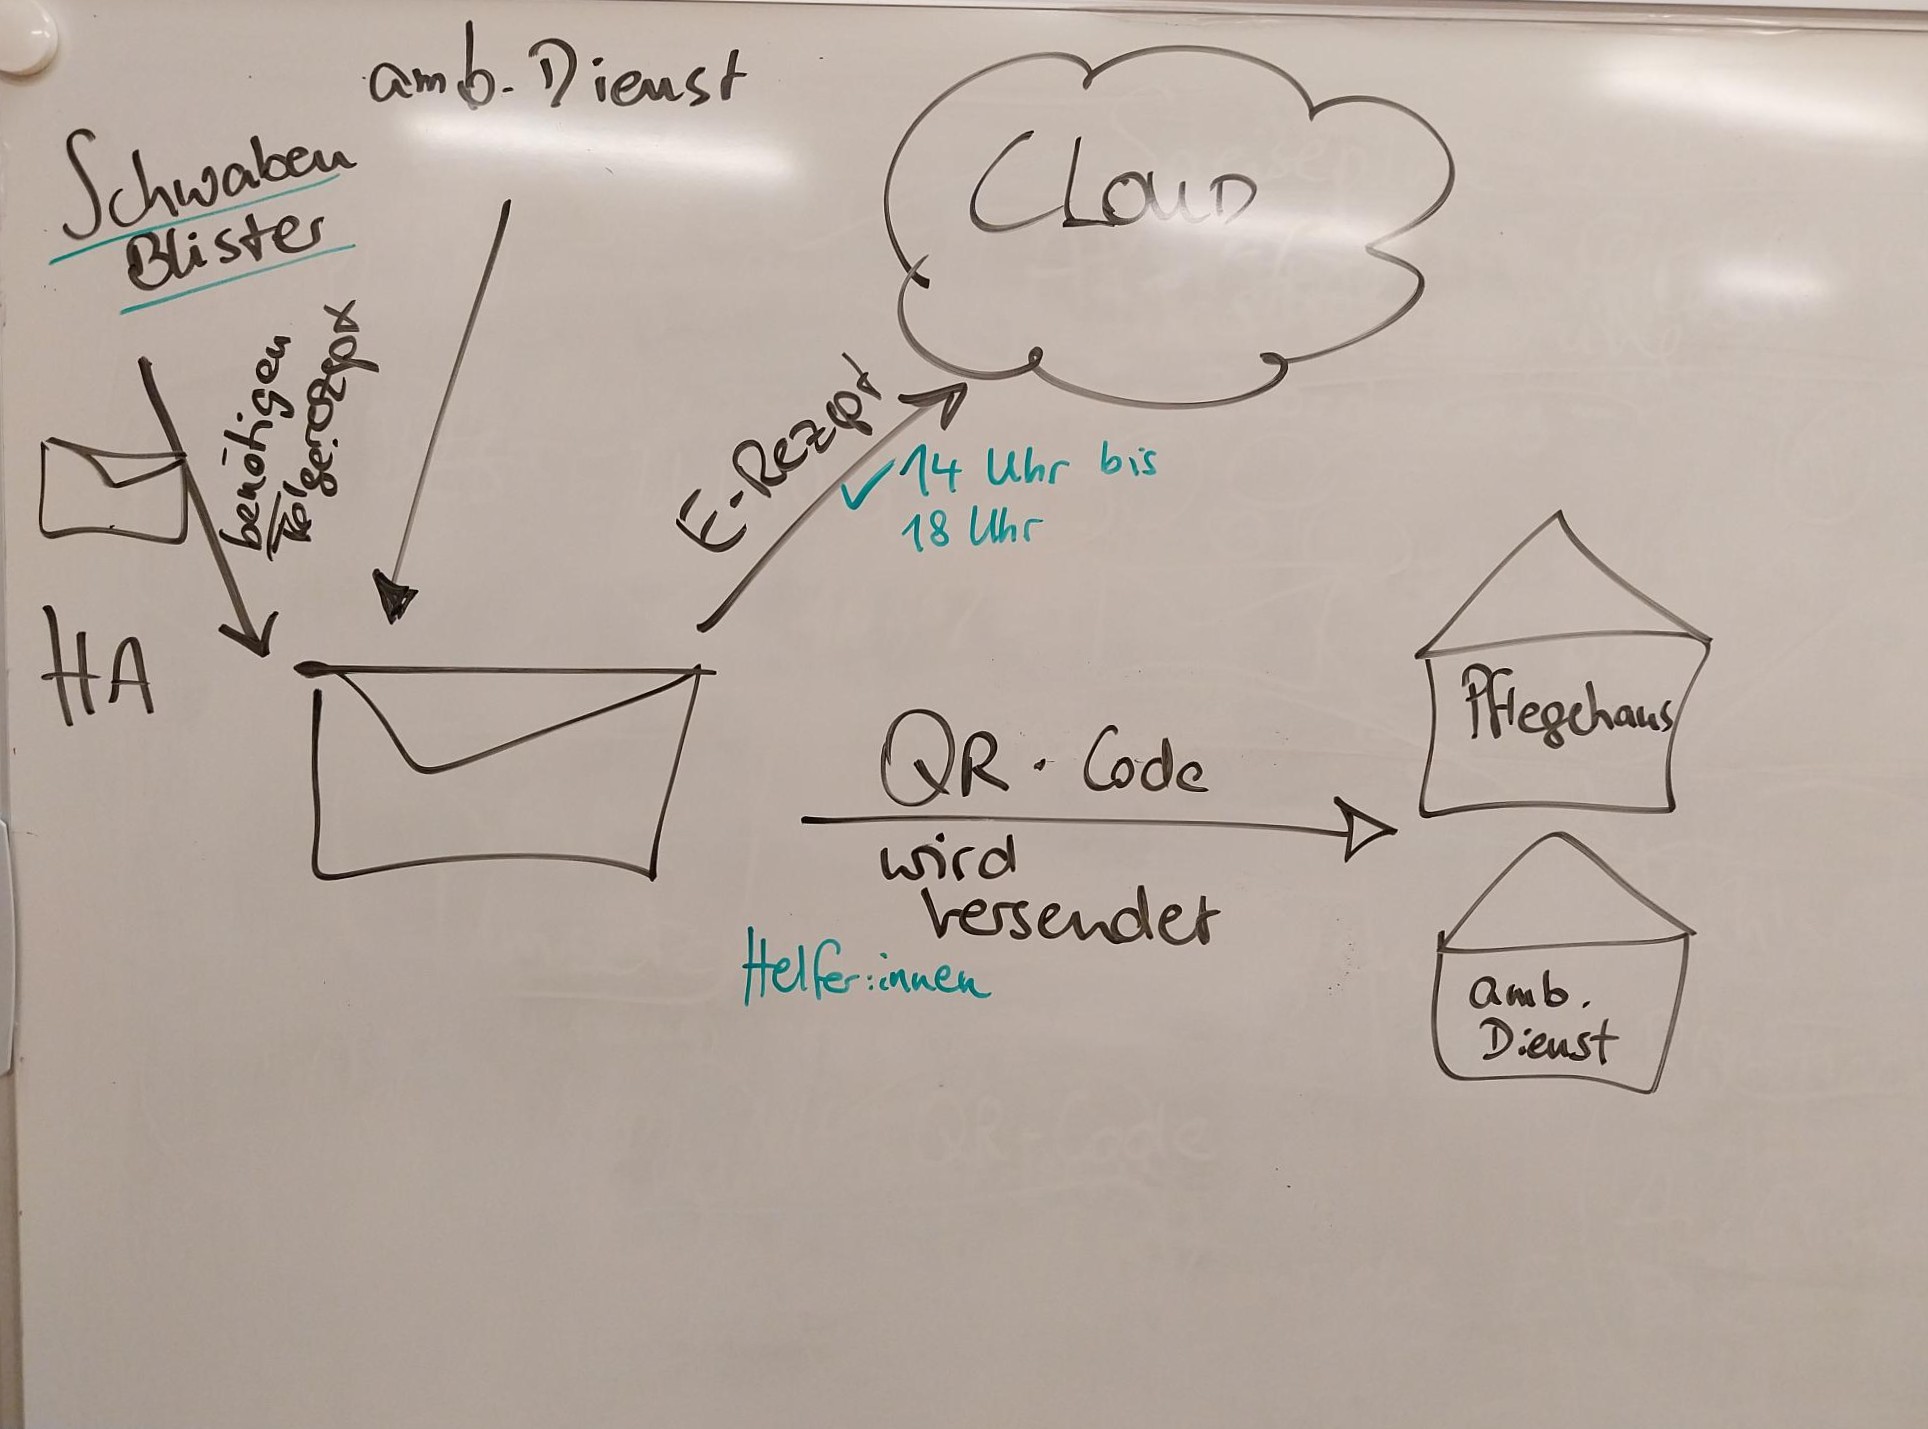 amb. Dienst
Schwaben
Blister
benötigen
Folgerezept
CLOUD
E-Rezept
14 Uhr bis
18 Uhr
HA
QR-Code
wird
versendet
Helfer:innen
Pflegehaus
amb.
Dienst
QR-Code